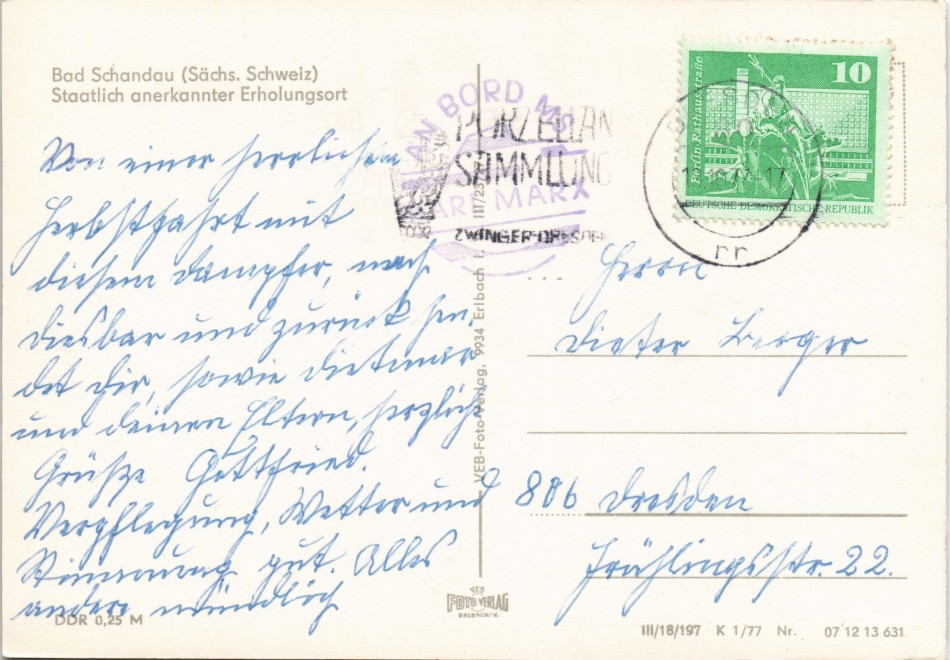 Bad Schandau (Sächs. Schweiz)
Staatlich anerkannter Erholungsort
Von einer herrlichen
Herbstfahrt mit
diesem Dampfer, nach
diesbar und zurück sen,
det dir, sowie dietmar
und deinen Eltern, herzliche
Grüße Gottfried.
Verpflegung, Wetter und
Stimmung gut. Alles
andere mündlich
DDR 0,25 M
VEB-Foto-Verlag, 9934 Erlbach I. III/23
AN BORD MS
KARL MARX
PORZELLAN
SAMMLUNG
ZWINGER-DRESDEN
10
Berlin, Rathausstraße
DEUTSCHE DEMOKRATISCHE REPUBLIK
rr
Herrn
Dieter Berger
806 Dresden
Frühlingsstr. 22.
VEB
FOTO VERLAG
ERLBACH/V.
III/18/197 K 1/77 Nr. 07 12 13 631